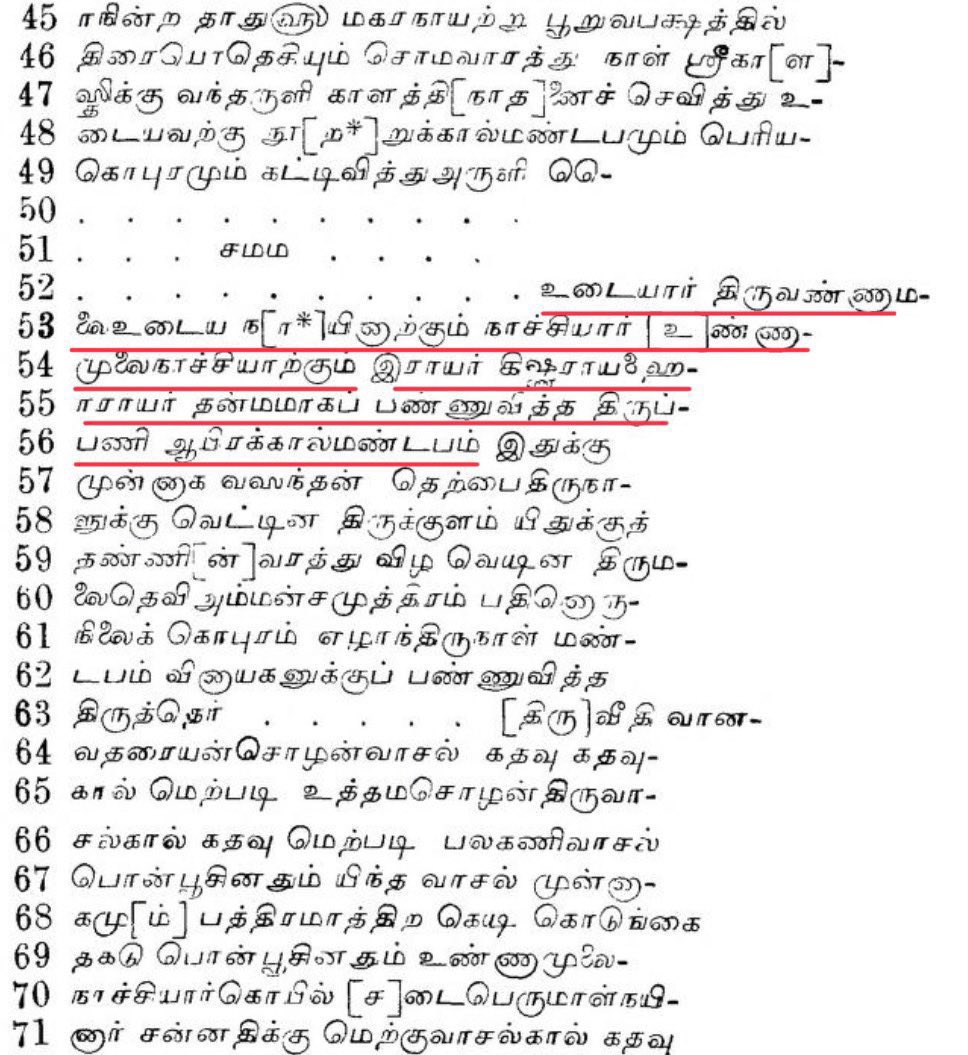 45 ரநின்ற தாது௵ மகரநாயற்று பூறுவபக்ஷத்தில்
46 திரையொதெசியும் சொமவாரத்து நாள் ஸ்ரீகா[ள]-
47 ஸ்திக்கு வந்தருளி காளத்தி[நாத]னைச் செவித்து உ-
48 டையவற்கு நூ[ற*]றுக்கால்மண்டபமும் பெரிய-
49 கொபுரமும் கட்டிவித்துஅருளி பெ-
50 . . . . . . . . . .
51 . . . சமம . . . .
52 . . . . . . . . . . உடையார் திருவண்ணாம-
53 லைஉடைய ந[ா*]யினாற்கும் நாச்சியார் [உ]ண்ணா-
54 முலைநாச்சியாற்கும் இராயர் கிஷ்ணராயஹெ-
55 ாராயர் தன்மமாகப் பண்ணுவித்த திருப்-
56 பணி ஆயிரக்கால்மண்டபம் இதுக்கு
57 முன்னாக வஸந்தன் தெற்பைதிருநா-
58 ளுக்கு வெட்டின திருக்குளம் யிதுக்குத்
59 தண்ணி[ன்]வரத்து விழ வெடின திரும-
60 லைதெவிஅம்மன்சமுத்திரம் பதினொரு-
61 நிலைக் கொபுரம் எழாந்திருநாள் மண்-
62 டபம் வினாயகனுக்குப் பண்ணுவித்த
63 திருத்தெர் . . . . . [திரு]வீதி வான-
64 வதரையன்சொழன்வாசல் கதவு கதவு-
65 கால் மெற்படி உத்தமசொழன்திருவா-
66 சல்கால் கதவு மெற்படி பலகணிவாசல்
67 பொன்பூசினதும் யிந்த வாசல் முன்னா-
68 கமு[ம்] பத்திரமாத்திற கெடி கொடுங்கை
69 தகடு பொன்பூசினதும் உண்ணாமுலை-
70 நாச்சியார்கொயில் [ச]டைபெருமாள்நயி-
71 னார் சன்னதிக்கு மெற்குவாசல்கால் கதவு